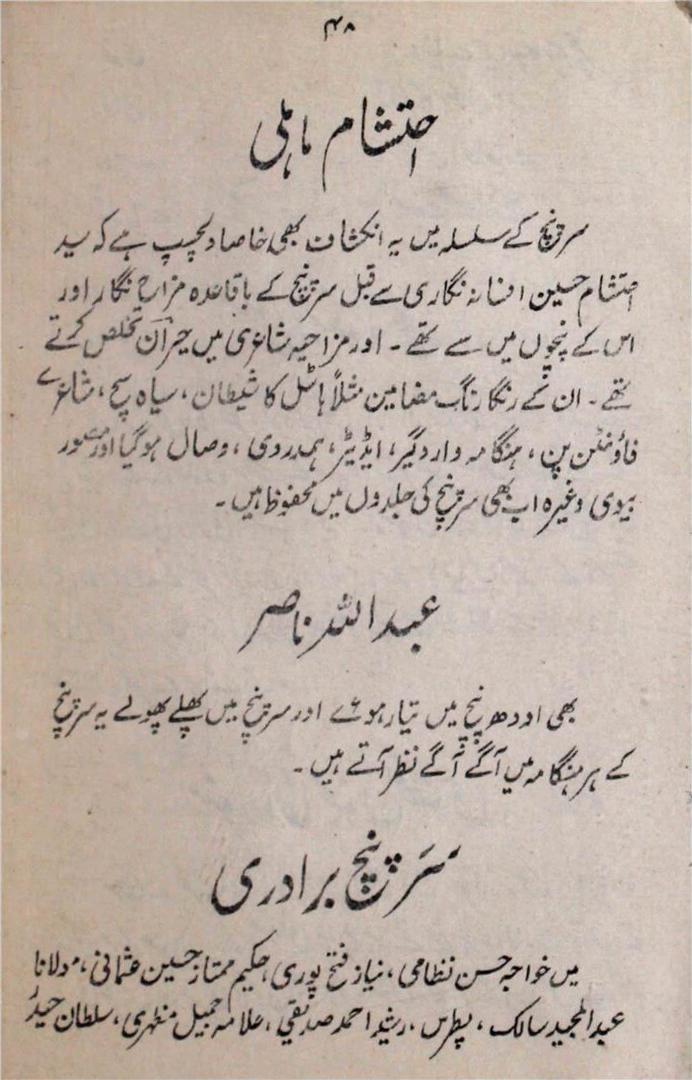 ۴۸
احتشام ماہلی
سرپنچ کے سلسلہ میں یہ انکشاف بھی خاصا دلچسپ ہے کہ سید
احتشام حسین افسانہ نگاری سے قبل سرپنچ کے باقاعدہ مزاح نگار اور
اس کے پنچوں میں سے تھے۔ اور مزاحیہ شاعری میں حیران تخلص کرتے
تھے۔ ان کے رنگا رنگ مضامین مثلاً ہاسٹل کا شیطان، سیاہ سچ، شاعرے
فاؤنٹن پن، ہنگامہ دار دگیر، ایڈیٹر، ہمدردی، وصال ہوگیا اور مصور
بیوی وغیرہ اب بھی سرپنچ کی جلدوں میں محفوظ ہیں۔
عبداللہ ناصر
بھی اودھ پنچ میں تیار ہوئے اور سرپنچ میں پھلے پھولے یہ سرپنچ
کے ہر ہنگامہ میں آگے آگے نظر آتے ہیں۔
سَرپنچ برادری
میں خواجہ حسن نظامی، نیاز فتح پوری، حکیم ممتاز حسین عثمانی، مولانا
عبدالمجید سالک، پطرس، رشید احمد صدیقی، علامہ جمیل مظہری، سلطان حیدر